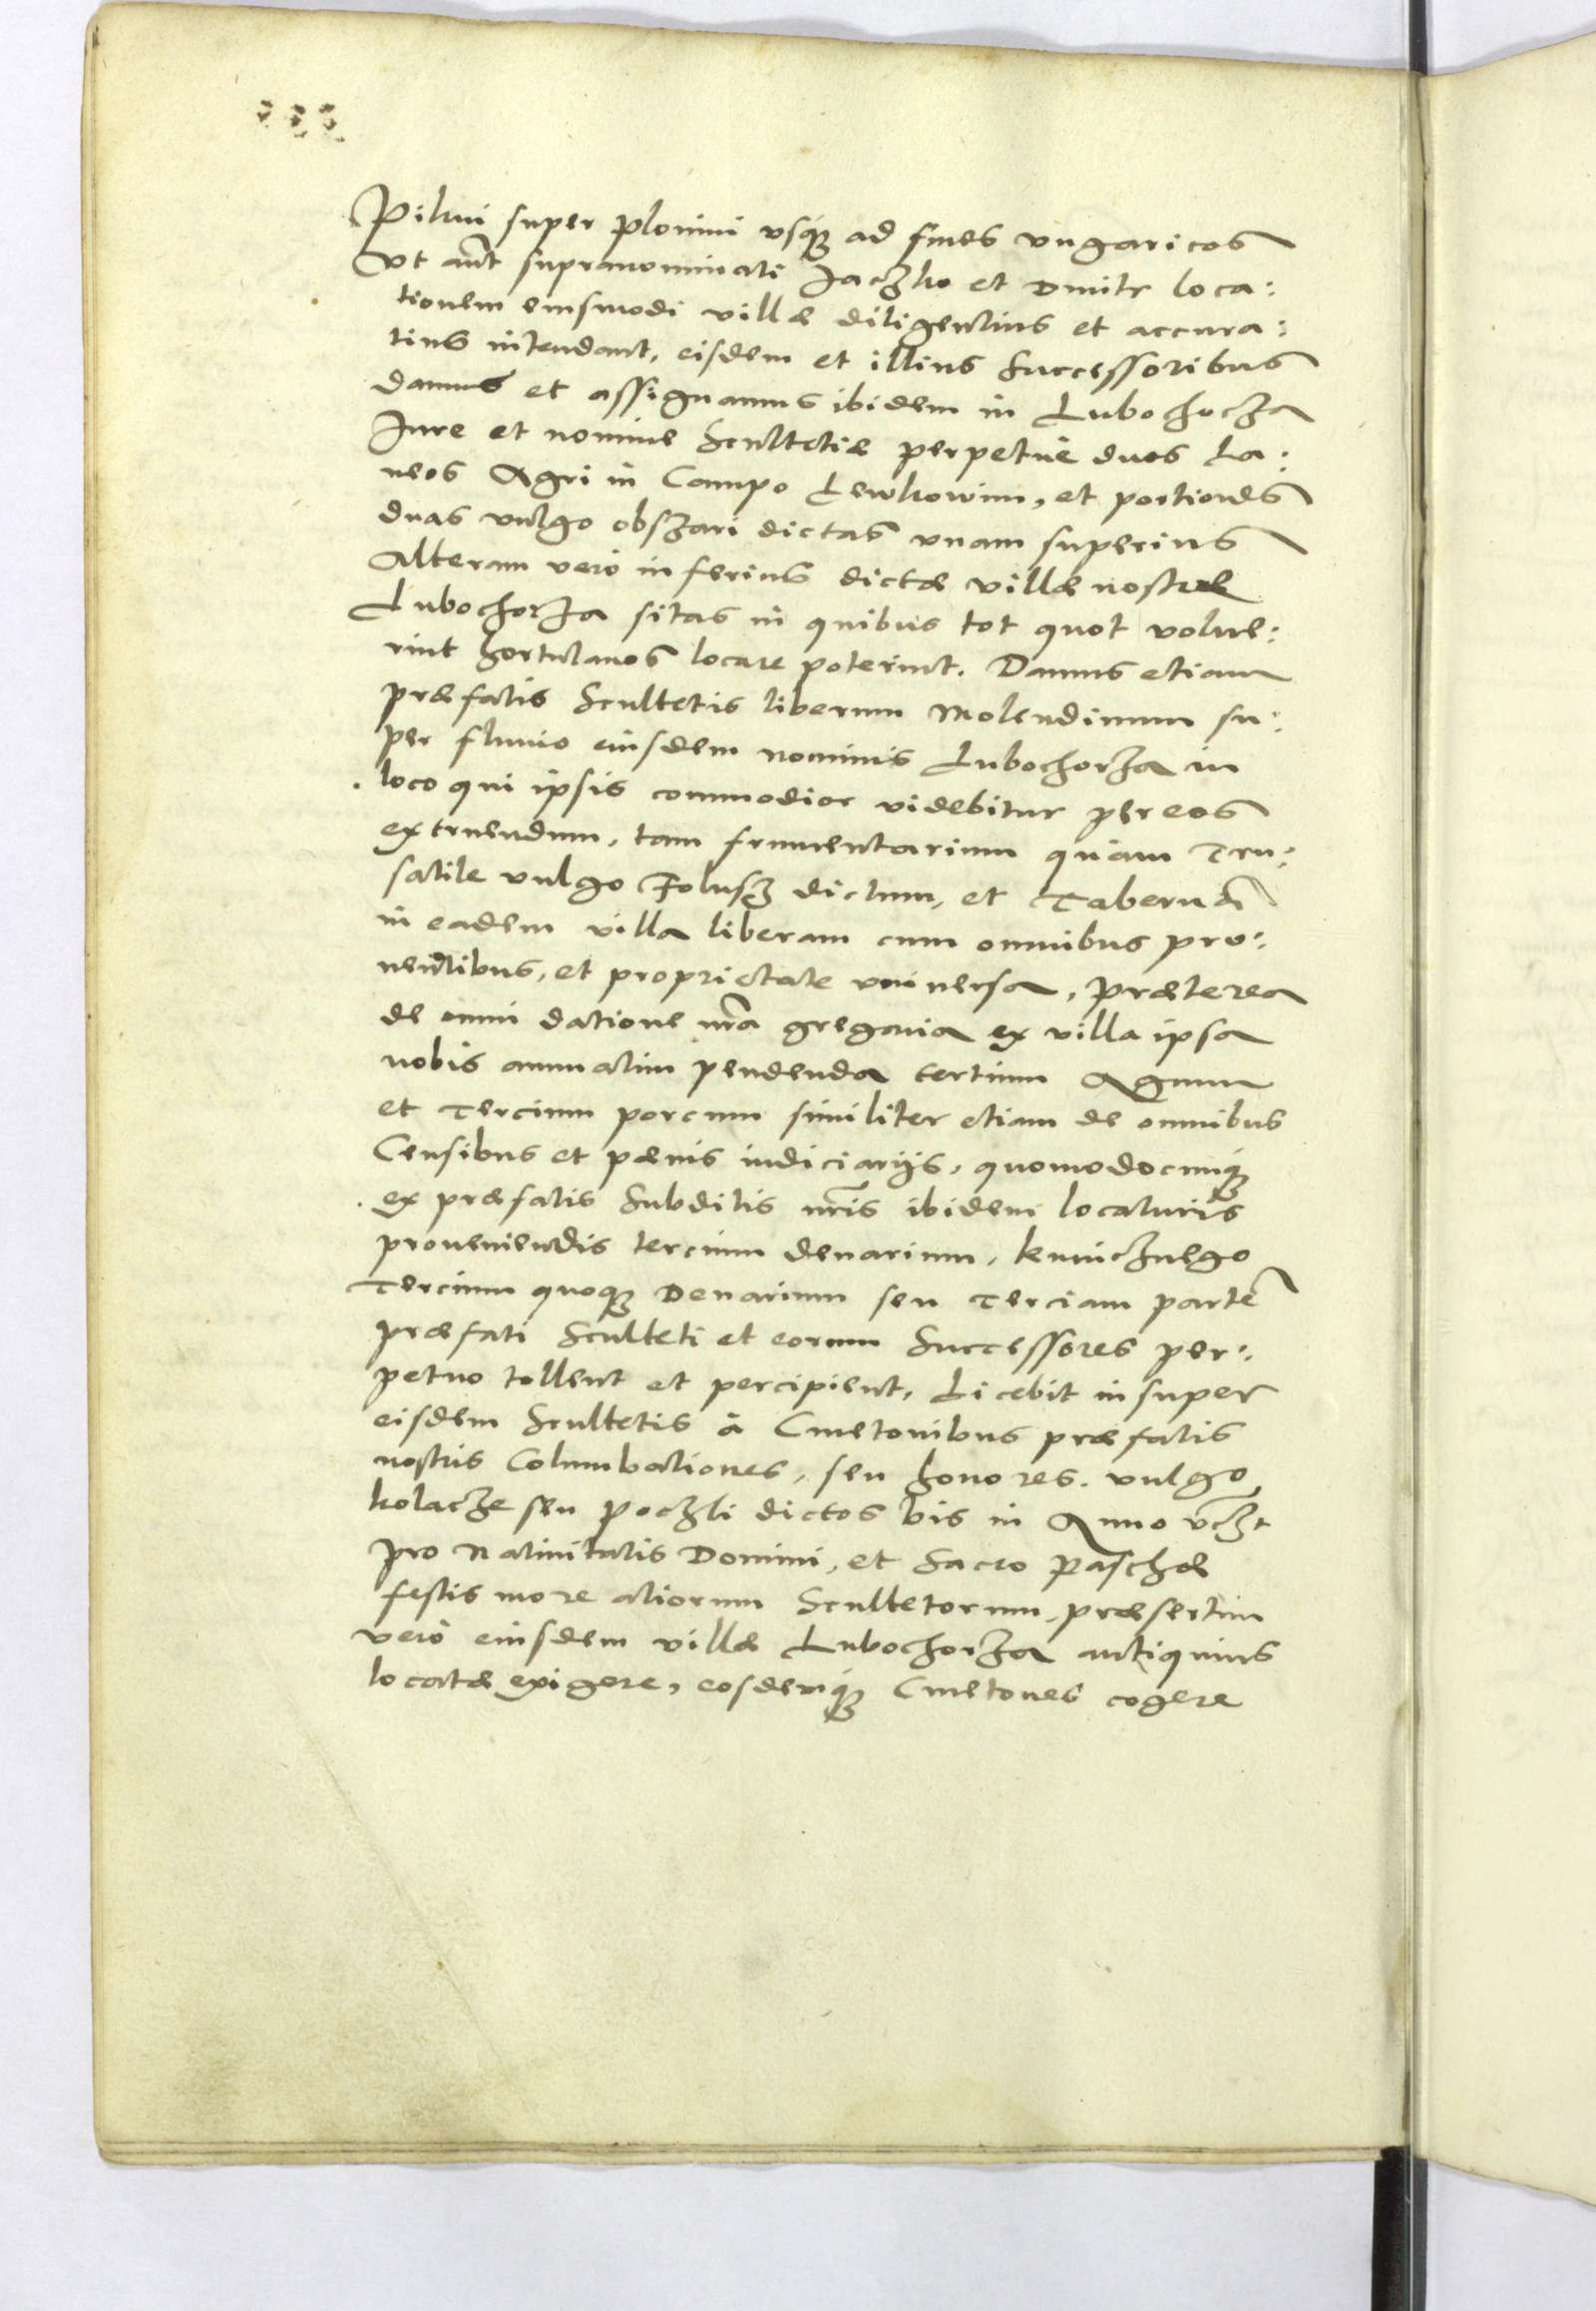 Pikui super Plonini vsq́ʒ ad fines vngaricos
Vt aũt supranominati Jaczko et Dmitr loca:
tionem eiusmodi villæ diligentius et accura:
tius intendant, eisdem et illius Successoribus
damus et assignamus ibidem in Lubochocza
Jure et nomine Scultetiæ perpetuè duos La:
neos Agri in Campo Lewkowim, et portiones
duas vulgo obszari dictas vnam superius
Alteram verò inferius dictæ villæ nostræ
Lubochorza sitas in quibus tot quot volue:
rint hortulanos locare poterint. Damus etiam
præfatis Scultetis liberum Molendinum su:
per fluuio eiusdem nominis Lubochorza in
loco qui ipsis commodior videbitur per eos
extruendum, tam frumentarium quàm Tru:
satile vulgo Folusz dictum, et Tabernã
in eadem villa liberam cum omnibus pro:
uentibus, et proprietate vniuersa, præterea
de omni datione nrã gregaria ex villa ipsa
nobis annuatim pendenda tertium Agnum
et Tercium porcum similiter etiam de omnibus
Censibus et pænis iudiciarijs, quomodocunq́ʒ
ex præfatis Subditis nris̃ ibidem locaturis
proueniendis tercium denarium, kunicznego
Tercium quoqʒ Denarium seu Terciam partẽ
præfati Sculteti et eorum Successores per:
petuo tollent et percipient, Licebit insuper
eisdem Scultetis à Cmetonibus præfatis
nostris Columbationes, seu honores. vulgo
kolacze seu poczti dictos bis in Anno vczt̃
pro Natiuitatis Domini, et Sacro Paschæ
festis more aliorum Scultetorum, præsertim
verò eiusdem villæ Lubochorza antiquius
locatæ exigere, eosdemq́ʒ Cmetones cogere